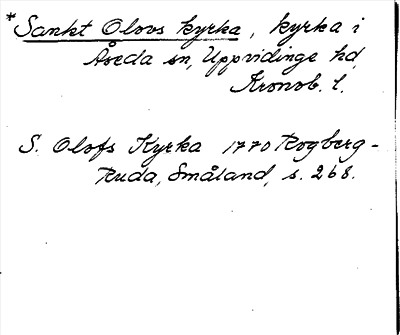 *Sankt Olovs kyrka, kyrka i
Åseda sn, Uppvidinge hd,
Kronob. l.
S. Olofs Kyrka 1770 Rogberg-
Ruda, Småland, s. 268.